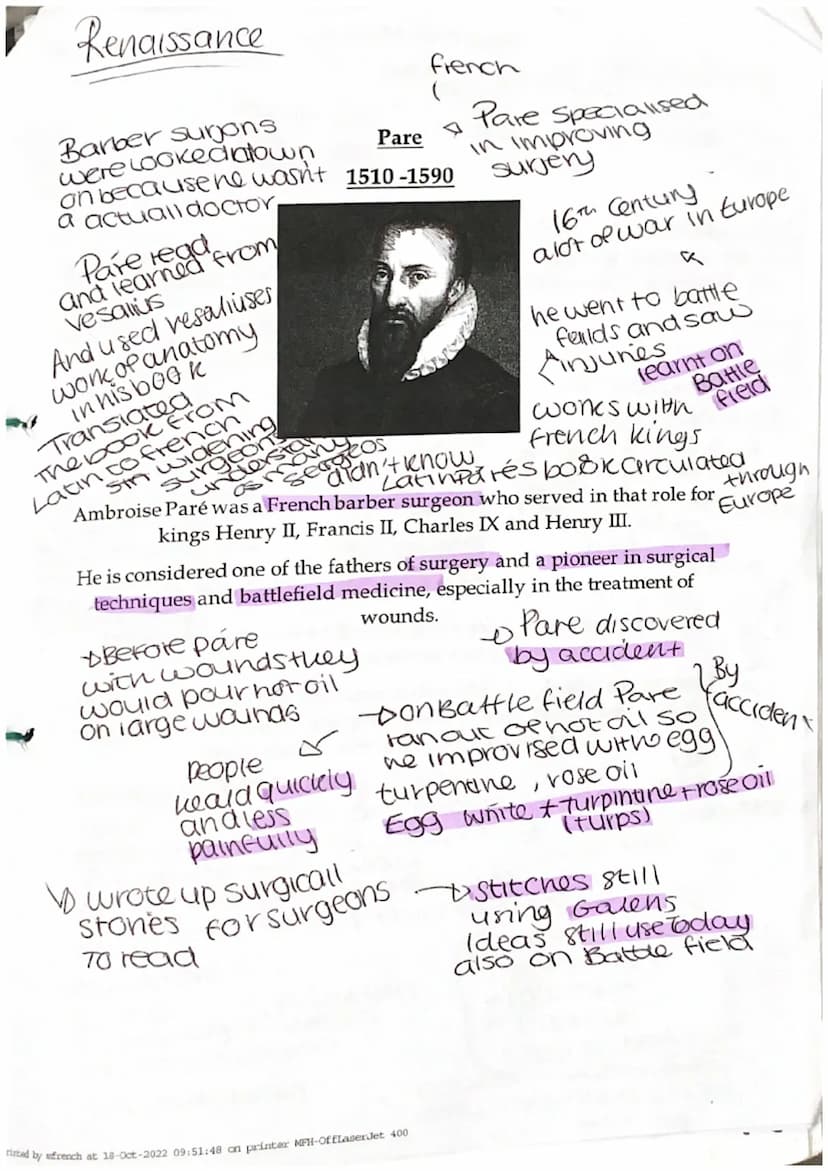 Renaissance
french
Pare
1510 -1590
Pare Specialised
in improving
surgery
Barber surgons
were looked down
on because he wasn't
a actuall doctor
16th Century
alot of war in Europe
Paré read
and learned from
vesalius
And used vesaliuses
work of anatomy
in his book
Translated
The book from
Latin to french
widening
surgeons
as many
didn't know
Latin
he went to battle
feilds and saw
injuries
learnt on
Battle
field
works with
french kings
Parés book circulated
through
Europe
Ambroise Paré was a French barber surgeon who served in that role for
kings Henry II, Francis II, Charles IX and Henry III.
He is considered one of the fathers of surgery and a pioneer in surgical
techniques and battlefield medicine, especially in the treatment of
wounds.
Before páre
with wounds they
would pour hot oil
on large wounds
Pare discovered
by accident
By
accident
on Battle field Pare
ran out of hot oil so
he improvised with egg
turpentine, rose oil
Egg white + turpintine + rose oil
(turps)
people
heald quickly
and less
painfully
wrote up surgicall
stories for surgeons
TO read
Stitches still
using Galens
Ideas still use Today
also on Battle field
rinted by mfrench at 18-Oct-2022 09:51:48 on printer MFH-OffLaserJet 400